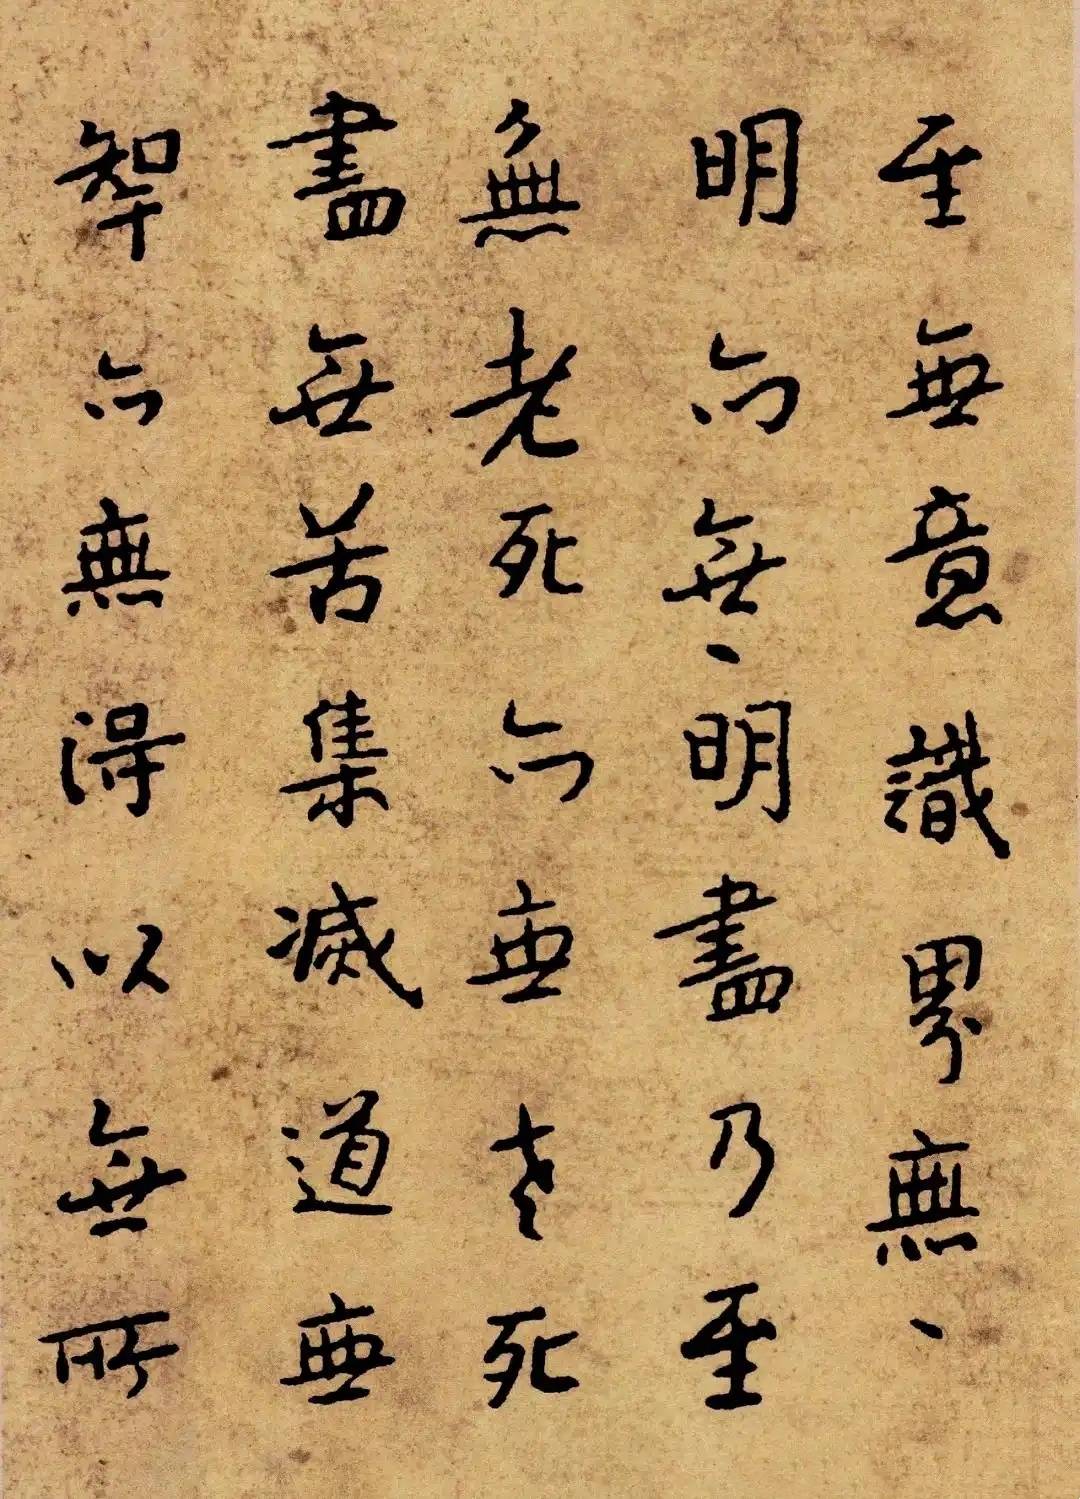 至無意識界無、
明亦無、明盡乃至
無老死亦無老死
盡無苦集滅道無
智亦無得以無所